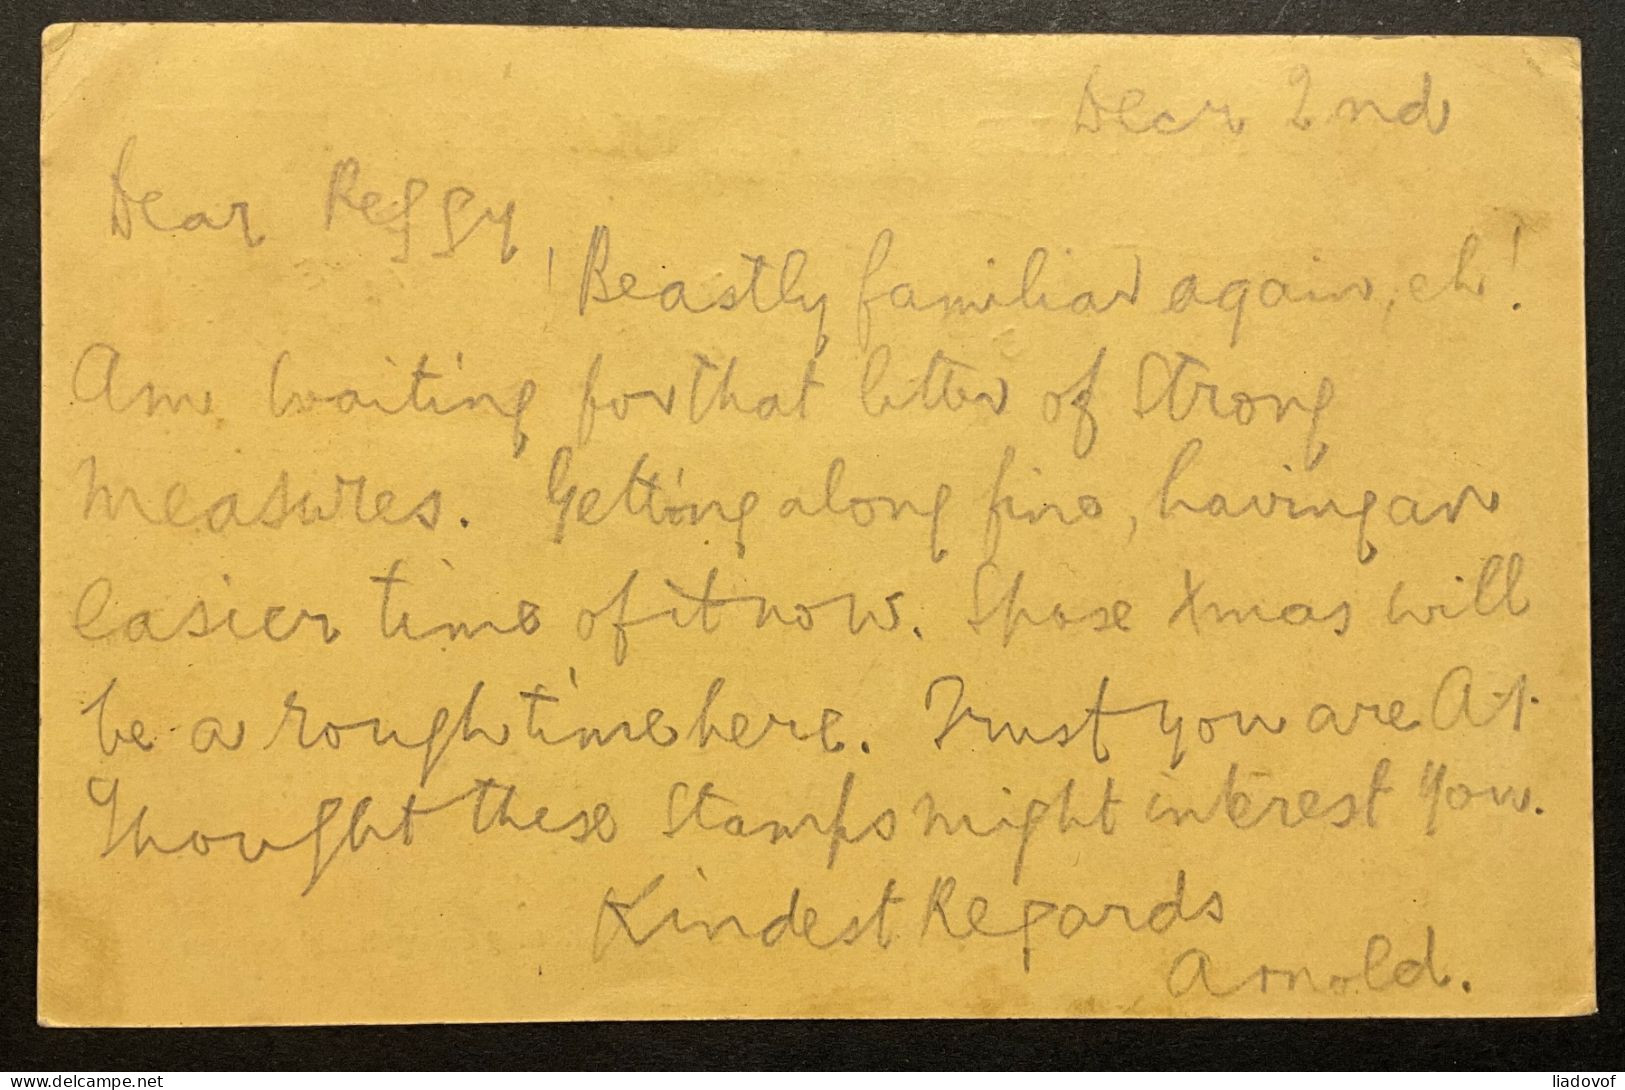 Decr 2nd
Dear Reggy
! Beastly familiar again, eh!
Am waiting for that letter of Strong
measures. Getting along fine, having an
easier time of it now. Spose Xmas will
be a rough time here. Trust you are A.1.
Thought these stamps might interest you.
Kindest Regards
Arnold.
Delcampe.net
liadovof